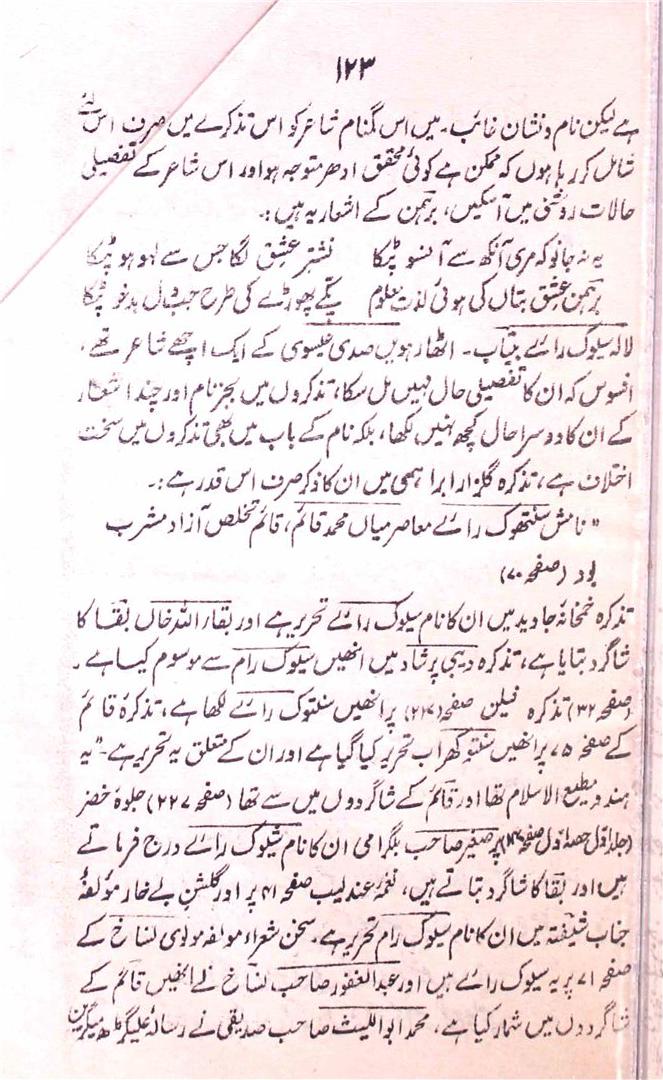 ۱۲۳
ہے لیکن نام و نشان غائب۔ میں اس گمنام شاعر کو اس تذکرے میں صرف اس لئے
شامل کر رہا ہوں کہ ممکن ہے کوئی محقق ادھر متوجہ ہو اور اس شاعر کے تفصیلی
حالات روشنی میں آسکیں، برہمن کے اشعار یہ ہیں :۔
یہ نہ جانو کہ مری آنکھ سے آنسو ٹپکا نشترِ عشق لگا جس سے لہو ہو ٹپکا
برہمن عشق بتاں کی ہوئی لذت معلوم پکے پھوڑے کی طرح جب دل بدخو ٹپکا
لالہ سیلوک رائے بیتاب۔ اٹھارہویں صدی عیسوی کے ایک اچھے شاعر تھے،
افسوس کہ ان کا تفصیلی حال نہیں مل سکا، تذکروں میں بجز نام اور چند اشعار
کے ان کا دوسرا حال کچھ نہیں لکھا، بلکہ نام کے باب میں بھی تذکروں میں سخت
اختلاف ہے، تذکرہ گلزار ابراہیمی میں ان کا ذکر صرف اس قدر ہے :۔
" نامش سنتھوک رائے معاصر میاں محمد قائم، قائم تخلص آزاد مشرب
بود (صفحہ ۷۰)
تذکرہ خمخانۂ جاوید میں ان کا نام سیلوک رائے تحریر ہے اور بقاء اللہ خاں بقا کا
شاگرد بتایا ہے، تذکرہ دیبی پرشاد میں انھیں سیلوک رام سے موسوم کیا ہے۔
(صفحہ ۳۲) تذکرہ فیلن صفحہ (۲۱۷) پر انھیں سنتوک رائے لکھا ہے، تذکرۂ قائم
کے صفحہ ۷۵ پر انھیں تحریر کیا گیا ہے اور ان کے متعلق یہ تحریر ہے۔ "یہ
ہندو مطیع الاسلام تھا اور قائم کے شاگردوں میں سے تھا (صفحہ ۲۲۷) جلوۂ خضر
(جلد اول حصہ اول صفحہ) پر صغیر صاحب بلگرامی ان کا نام شیلوک رائے درج فرماتے
ہیں اور بقا کا شاگرد بتاتے ہیں، نغمۂ عندلیب صفحہ ۴۱ پر اور گلشن بے خار مؤلفۂ
جناب شیفتہ میں ان کا نام سیلوک رام تحریر ہے۔ سخن شعراء مولفہ مولوی نساخ کے
صفحہ ۷۱ پر یہ سیلوک رائے ہیں اور عبد الغفور صاحب نساخ نے انھیں قائم کے
شاگردوں میں شمار کیا ہے، محمد ابو اللیث صاحب صدیقی نے رسالہ علیگڑھ میگزین